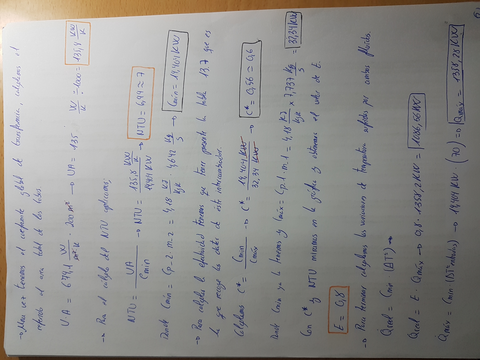 → Ahora si tenemos el coeficiente global de transferencia, calculamos el
referido al area total de los tubos.
U·A = 679,1 W/m²·K · 200 m² → UA = 135 W/K ÷ 1000 = 135,8 KW/K
→ Para el calculo del NTU aplicamos;
NTU = UA/Cmin → NTU = 135,8 KW/K / 19,401 KW → NTU = 6,99 ≈ 7
Donde Cmin = Cp·2 · m·2 = 4,18 KJ/Kg·K · 4,641 Kg/s → Cmin = 19,401 KW
→ Para calcular la efectividad tenemos que tener presente la tabla 13.7 que es
la que recoge los datos de este intercambiador.
Calculamos C* = Cmin/Cmax → C* = 19,401 KW / 32,34 KW → C* = 0,56 ≈ 0,6
Donde Cmin ya la tenemos y Cmax = Cp·1 · m·1 = 4,18 KJ/Kg·K × 7,737 Kg/s = 32,34 KW
Con C* y NTU miramos en la grafica y obtenemos el valor de E.
E = 0,8
→ Para terminar calculamos las variaciones de temperatura sufridas por ambos fluidos.
Qreal = Cmin (ΔT) →
Qreal = E · Qmáx → 0,8 · 1358,2 KW = 1086,56 KW
Qmáx = Cmin (ΔT) → 19,401 KW (70) = Qmáx = 1358,25 KW